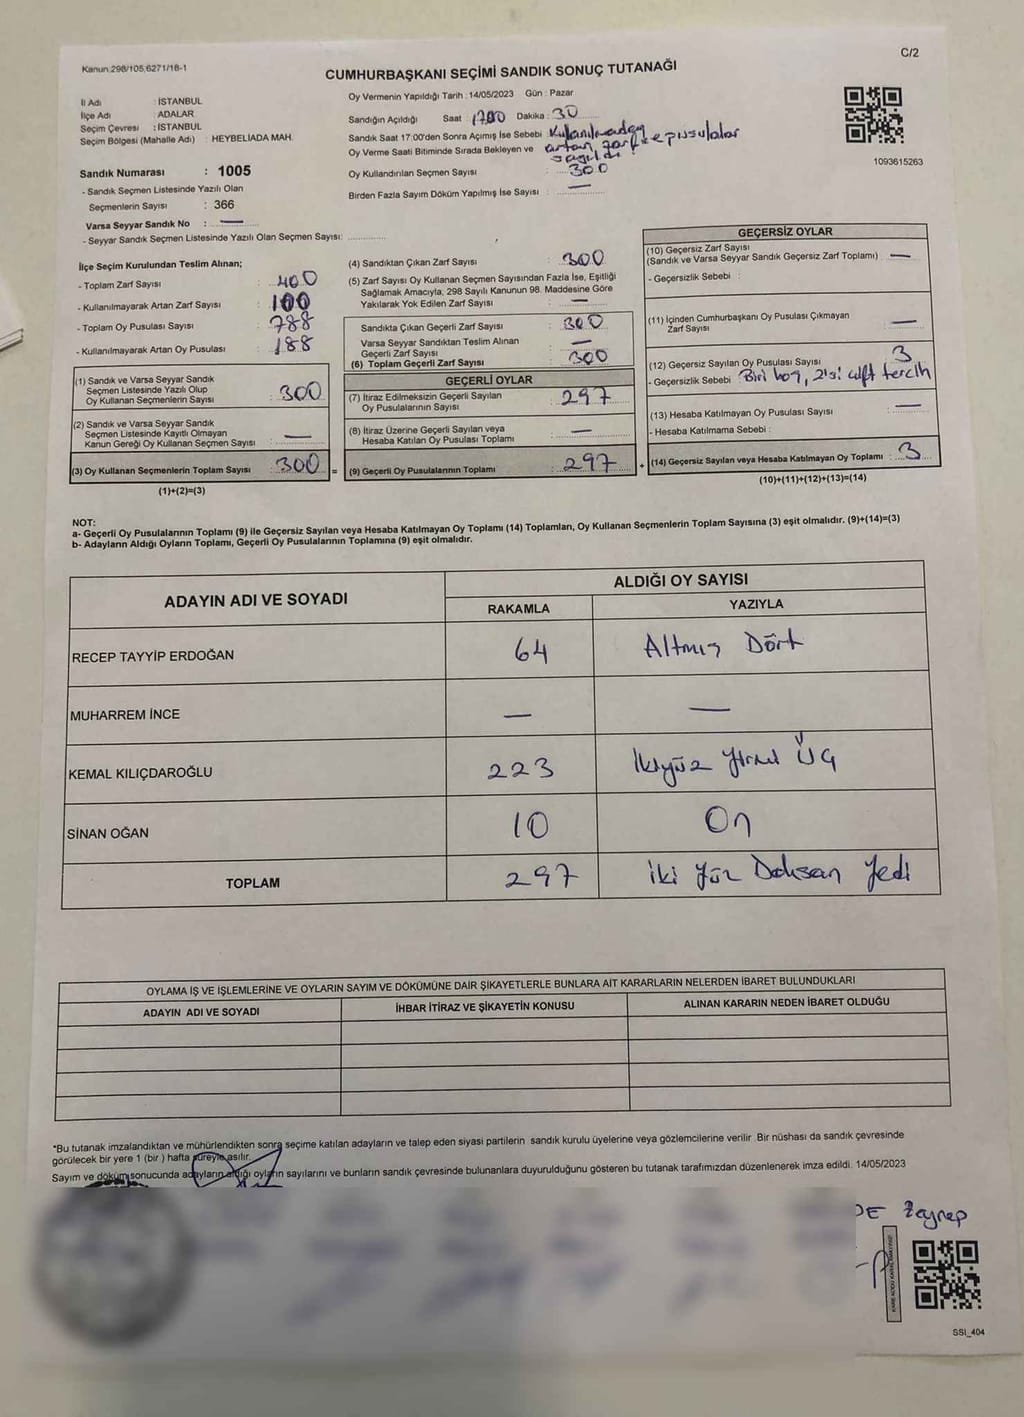 Kanun:298/105,6271/18-1
C/2
CUMHURBAŞKANI SEÇİMİ SANDIK SONUÇ TUTANAĞI
İl Adı : İSTANBUL
İlçe Adı : ADALAR
Seçim Çevresi : İSTANBUL
Seçim Bölgesi (Mahalle Adı) : HEYBELİADA MAH.
Sandık Numarası : 1005
- Sandık Seçmen Listesinde Yazılı Olan
Seçmenlerin Sayısı : 366
Varsa Seyyar Sandık No : —
- Seyyar Sandık Seçmen Listesinde Yazılı Olan Seçmen Sayısı: .............
Oy Vermenin Yapıldığı Tarih : 14/05/2023 Gün : Pazar
Sandığın Açıldığı Saat : 1700 Dakika : 30
Sandık Saat 17:00'den Sonra Açımış İse Sebebi Kullanılmadan
Oy Verme Saati Bitiminde Sırada Bekleyen ve artan zarf ve pusulalar
sayıldı.
Oy Kullandırılan Seçmen Sayısı : 300
Birden Fazla Sayım Döküm Yapılmış İse Sayısı : —
1093615263
İlçe Seçim Kurulundan Teslim Alınan;
- Toplam Zarf Sayısı : 400
- Kullanılmayarak Artan Zarf Sayısı : 100
- Toplam Oy Pusulası Sayısı : 788
- Kullanılmayarak Artan Oy Pusulası : 188
(1) Sandık ve Varsa Seyyar Sandık
Seçmen Listesinde Yazılı Olup
Oy Kullanan Seçmenlerin Sayısı : 300
(2) Sandık ve Varsa Seyyar Sandık
Seçmen Listesinde Kayıtlı Olmayan
Kanun Gereği Oy Kullanan Seçmen Sayısı : —
(3) Oy Kullanan Seçmenlerin Toplam Sayısı : 300 =
(1)+(2)=(3)
(4) Sandıktan Çıkan Zarf Sayısı : 300
(5) Zarf Sayısı Oy Kullanan Seçmen Sayısından Fazla İse, Eşitliği
Sağlamak Amacıyla, 298 Sayılı Kanunun 98. Maddesine Göre
Yakılarak Yok Edilen Zarf Sayısı : —
Sandıkta Çıkan Geçerli Zarf Sayısı : 300
Varsa Seyyar Sandıktan Teslim Alınan
Geçerli Zarf Sayısı : —
(6) Toplam Geçerli Zarf Sayısı : 300
GEÇERLİ OYLAR
(7) İtiraz Edilmeksizin Geçerli Sayılan
Oy Pusulalarının Sayısı : 297
(8) İtiraz Üzerine Geçerli Sayılan veya
Hesaba Katılan Oy Pusulası Toplamı : —
(9) Geçerli Oy Pusulalarının Toplamı : 297 +
GEÇERSİZ OYLAR
(10) Geçersiz Zarf Sayısı
(Sandık ve Varsa Seyyar Sandık Geçersiz Zarf Toplamı) : —
- Geçersizlik Sebebi :
(11) İçinden Cumhurbaşkanı Oy Pusulası Çıkmayan
Zarf Sayısı : —
(12) Geçersiz Sayılan Oy Pusulası Sayısı : 3
- Geçersizlik Sebebi : Biri boş, 2'si çift tercih
(13) Hesaba Katılmayan Oy Pusulası Sayısı : —
- Hesaba Katılmama Sebebi :
(14) Geçersiz Sayılan veya Hesaba Katılmayan Oy Toplamı : 3
(10)+(11)+(12)+(13)=(14)
NOT:
a- Geçerli Oy Pusulalarının Toplamı (9) ile Geçersiz Sayılan veya Hesaba Katılmayan Oy Toplamı (14) Toplamları, Oy Kullanan Seçmenlerin Toplam Sayısına (3) eşit olmalıdır. (9)+(14)=(3)
b- Adayların Aldığı Oyların Toplamı, Geçerli Oy Pusulalarının Toplamına (9) eşit olmalıdır.
ADAYIN ADI VE SOYADI
ALDIĞI OY SAYISI
RAKAMLA YAZIYLA
RECEP TAYYİP ERDOĞAN 64 Altmış Dört
MUHARREM İNCE — —
KEMAL KILIÇDAROĞLU 223 İkiyüz yirmi Üç
SİNAN OĞAN 10 On
TOPLAM 297 iki yüz Doksan Yedi
OYLAMA İŞ VE İŞLEMLERİNE VE OYLARIN SAYIM VE DÖKÜMÜNE DAİR ŞİKAYETLERLE BUNLARA AİT KARARLARIN NELERDEN İBARET BULUNDUKLARI
ADAYIN ADI VE SOYADI İHBAR İTİRAZ VE ŞİKAYETİN KONUSU ALINAN KARARIN NEDEN İBARET OLDUĞU
*Bu tutanak imzalandıktan ve mühürlendikten sonra seçime katılan adayların ve talep eden siyasi partilerin sandık kurulu üyelerine veya gözlemcilerine verilir. Bir nüshası da sandık çevresinde
görülecek bir yere 1 (bir ) hafta süreyle asılır.
Sayım ve döküm sonucunda adayların aldığı oyların sayılarını ve bunların sandık çevresinde bulunanlara duyurulduğunu gösteren bu tutanak tarafımızdan düzenlenerek imza edildi. 14/05/2023
DE Zeynep
SSI_404